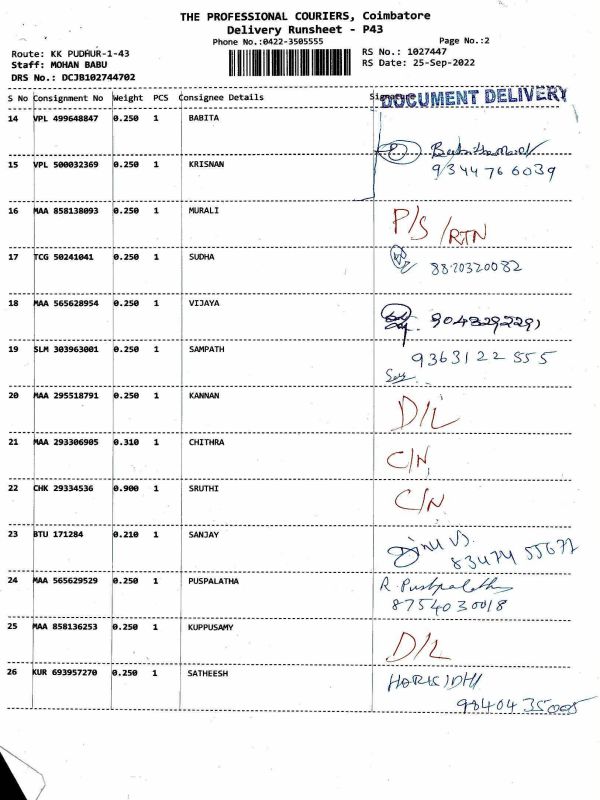 THE PROFESSIONAL COURIERS, Coimbatore
Delivery Runsheet - P43
Phone No.:0422-3505555
Page No.:2
Route: KK PUDHUR-1-43
RS No.: 1027447
Staff: MOHAN BABU
RS Date: 25-Sep-2022
DRS No.: DCJB102744702
S No Consignment No Weight PCS Consignee Details Signature
DOCUMENT DELIVERY
14 VPL 499648847 0.250 1 BABITA
15 VPL 500032369 0.250 1 KRISNAN 9344766039
16 MAA 858138093 0.250 1 MURALI P/S /RTN
17 TCG 50241041 0.250 1 SUDHA 8870320082
18 MAA 565628954 0.250 1 VIJAYA 9043292291
19 SLM 303963001 0.250 1 SAMPATH 9363122555
20 MAA 295518791 0.250 1 KANNAN D/L
21 MAA 293306905 0.310 1 CHITHRA C/N
22 CHK 29334536 0.900 1 SRUTHI C/N
23 BTU 171284 0.210 1 SANJAY 83474 55677
24 MAA 565629529 0.250 1 PUSPALATHA R. Pushpalatha
8754030018
25 MAA 858136253 0.250 1 KUPPUSAMY D/L
26 KUR 693957270 0.250 1 SATHEESH
98404 35005